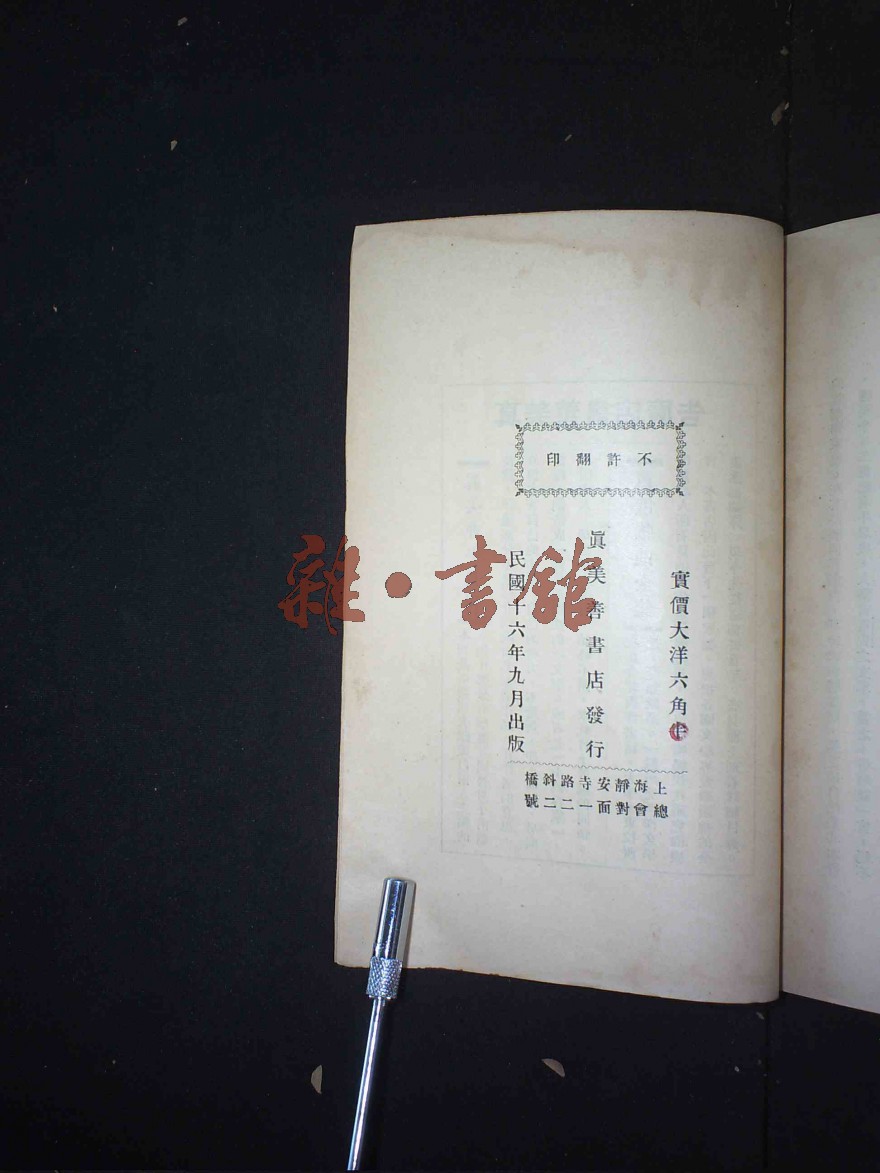 不許翻印
實價大洋六角半
眞美善書店發行
民國十六年九月出版
上海靜安寺路斜橋
總會對面一二二號
雜·書館